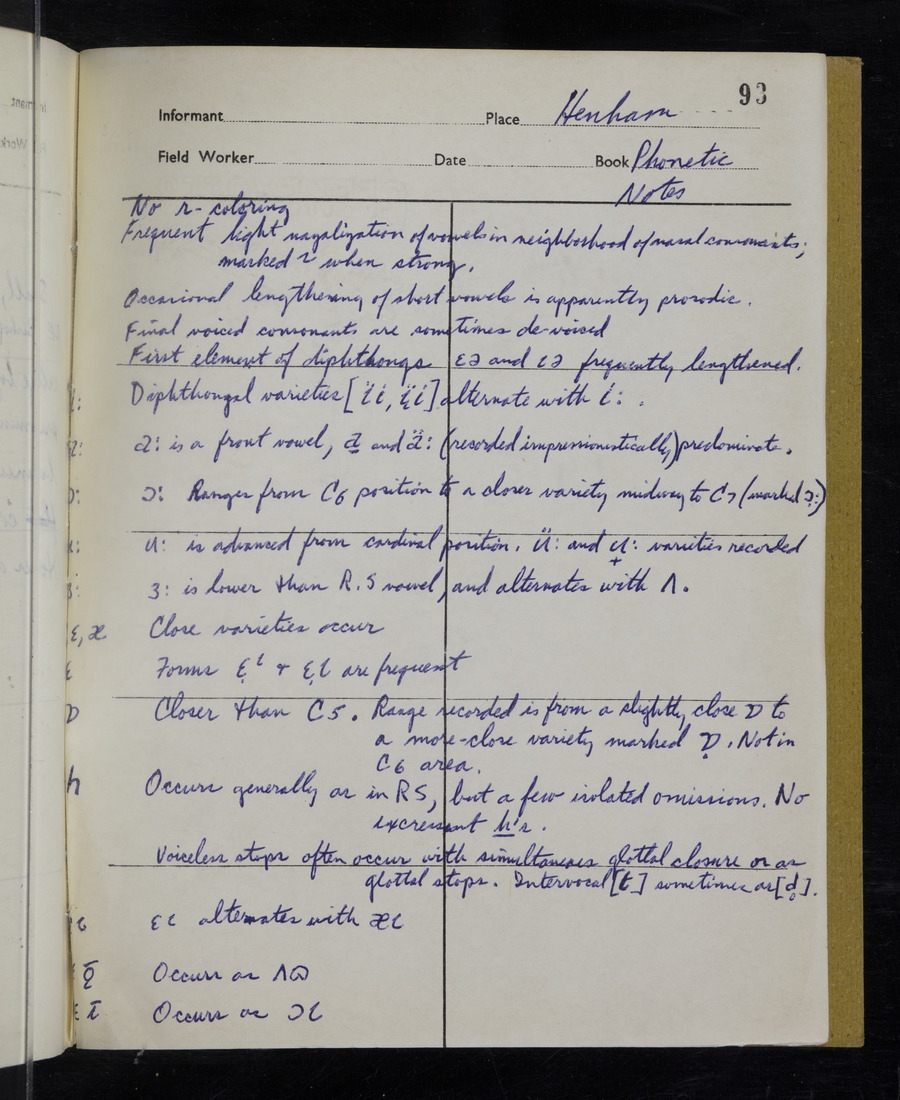 93
Informant Place Henham
Field Worker Date Book Phonetic
Notes
No r-coloring
Frequent light nazalization of vowels in neighborhood of nasal consonants;
marked ~ when strong.
Occasional lengthening of short vowels is apparently prosodic.
Final voiced consonants are sometimes de-voiced
First element of diphthongs ɛə and ɩə frequently lengthened.
i: Diphthongal varieties [ïi, ɩ̈i] alternate with i: .
a: a: is a front vowel, a̱ and ä: (recorded impressionistically) predominate.
ɔ: ɔ: Ranges from C6 position to a closer variety midway to C7 (marked ɔ̣:)
u: u: is advanced from cardinal position. ü: and u̟: varities recorded
ɜ: ɜ: is lower than R.S vowel, and alternates with ʌ.
ɛ, æ Close varieties occur
ɛ Forms ɛ̣ᶥ + ɛ̣ɩ are frequent
ɒ Closer than C5. Range recorded is from a slightly close ɒ to
a more-close variety marked ɒ̣. Not in
C6 area.
h Occurs generally as in RS, but a few isolated omissions. No
excrescent h's.
Voiceless stops often occur with simultaneous glottal closure or as
glottal stops. Intervocal [t] sometimes as [d̥].
ɛɩ alternates with æɩ
Occurs as ʌɷ
Occurs as ɔɩ